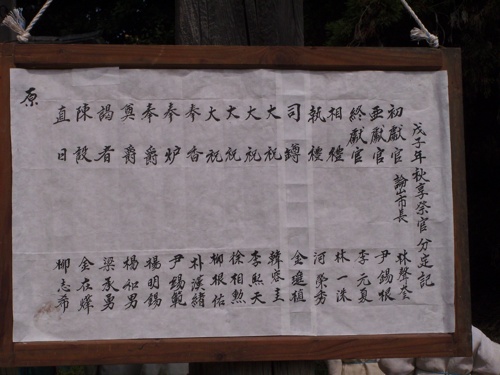 戊子年秋享祭官分定記
初獻官 論山市長 林聲奎
亞獻官 尹錫根
終獻官 李元夏
相禮 林一洙
執禮 河榮秀
司罇 金連植
大祝 韓啓圭
大祝 李熙天
大祝 徐相勲
大祝 柳根佑
奉香 朴漢緒
奉炉 尹錫範
奉爵 楊明錫
奠爵 楊和男
謁者 梁承勇
陳設 金在燁
直日 柳志希
原